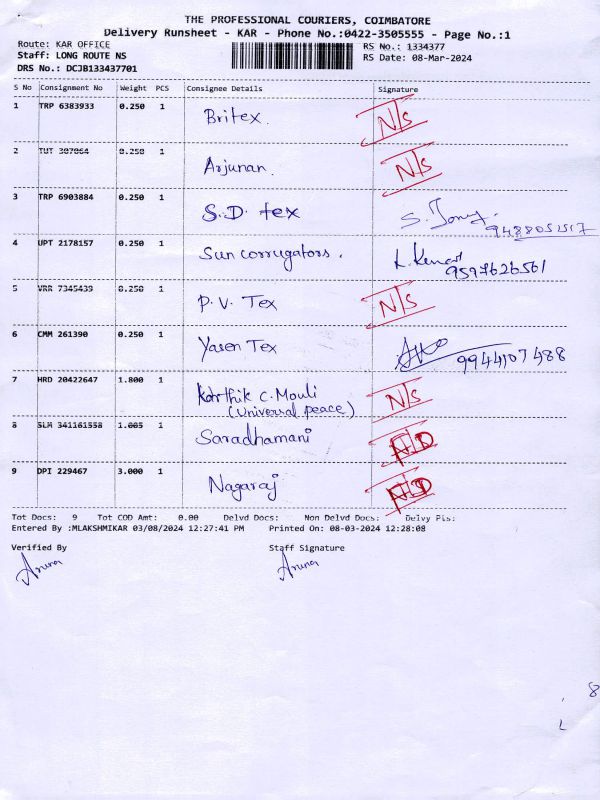 THE PROFESSIONAL COURIERS, COIMBATORE
Delivery Runsheet - KAR - Phone No.:0422-3505555 - Page No.:1
Route: KAR OFFICE RS No.: 1334377
Staff: LONG ROUTE NS RS Date: 08-Mar-2024
DRS No.: DCJB133437701
S No Consignment No Weight PCS Consignee Details Signature
1 TRP 6383933 0.250 1 Britex. N/S
2 TUT 307064 0.250 1 Arjunan. N/S
3 TRP 6903884 0.250 1 S.D. tex S. Tony.
9488051517
4 UPT 2178157 0.250 1 Sun corrugators.
9597626561
5 VRR 7345439 0.250 1 P.V. Tex N/S
6 CMM 261390 0.250 1 Yasen Tex 9944107488
7 HRD 20422647 1.800 1 Karthik C. Mouli N/S
(Universal peace)
8 SLM 341161558 1.005 1 Saradhamani
9 DPI 229467 3.000 1 Nagaraj
Tot Docs: 9 Tot COD Amt: 0.00 Delvd Docs: Non Delvd Docs: Delvy Pis:
Entered By :MLAKSHMIKAR 03/08/2024 12:27:41 PM Printed On: 08-03-2024 12:28:08
Verified By Staff Signature
Aruna Aruna
8
L